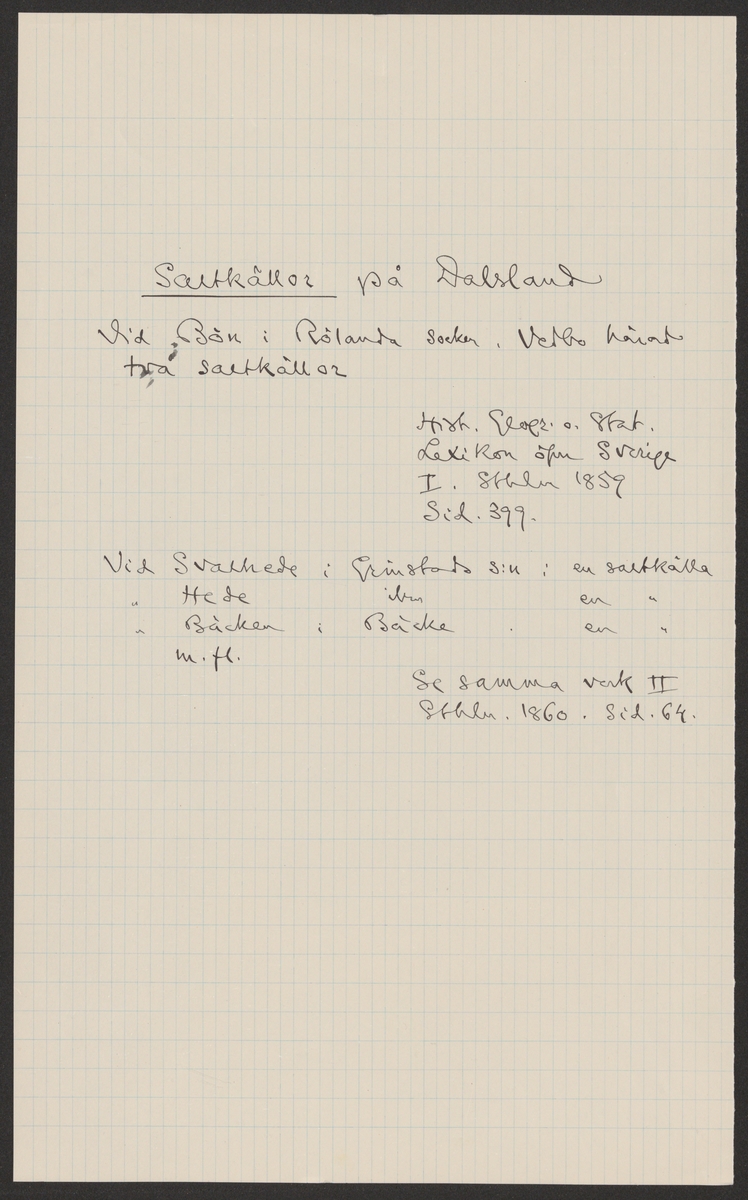 Saltkällor på Dalsland
Vid Bön i Rölanda socken, Vedbo härad
två saltkällor
Hist. Geogr. o. Stat.
Lexikon öfver Sverige
I. Sthlm 1859
Sid. 399.
Vid Svalhede i Grinstads s:n i en saltkälla
„ Hede ibm en „
„ Bäcken i Bäcke . en „
m. fl.
Se samma verk II
Sthlm. 1860. Sid. 64.